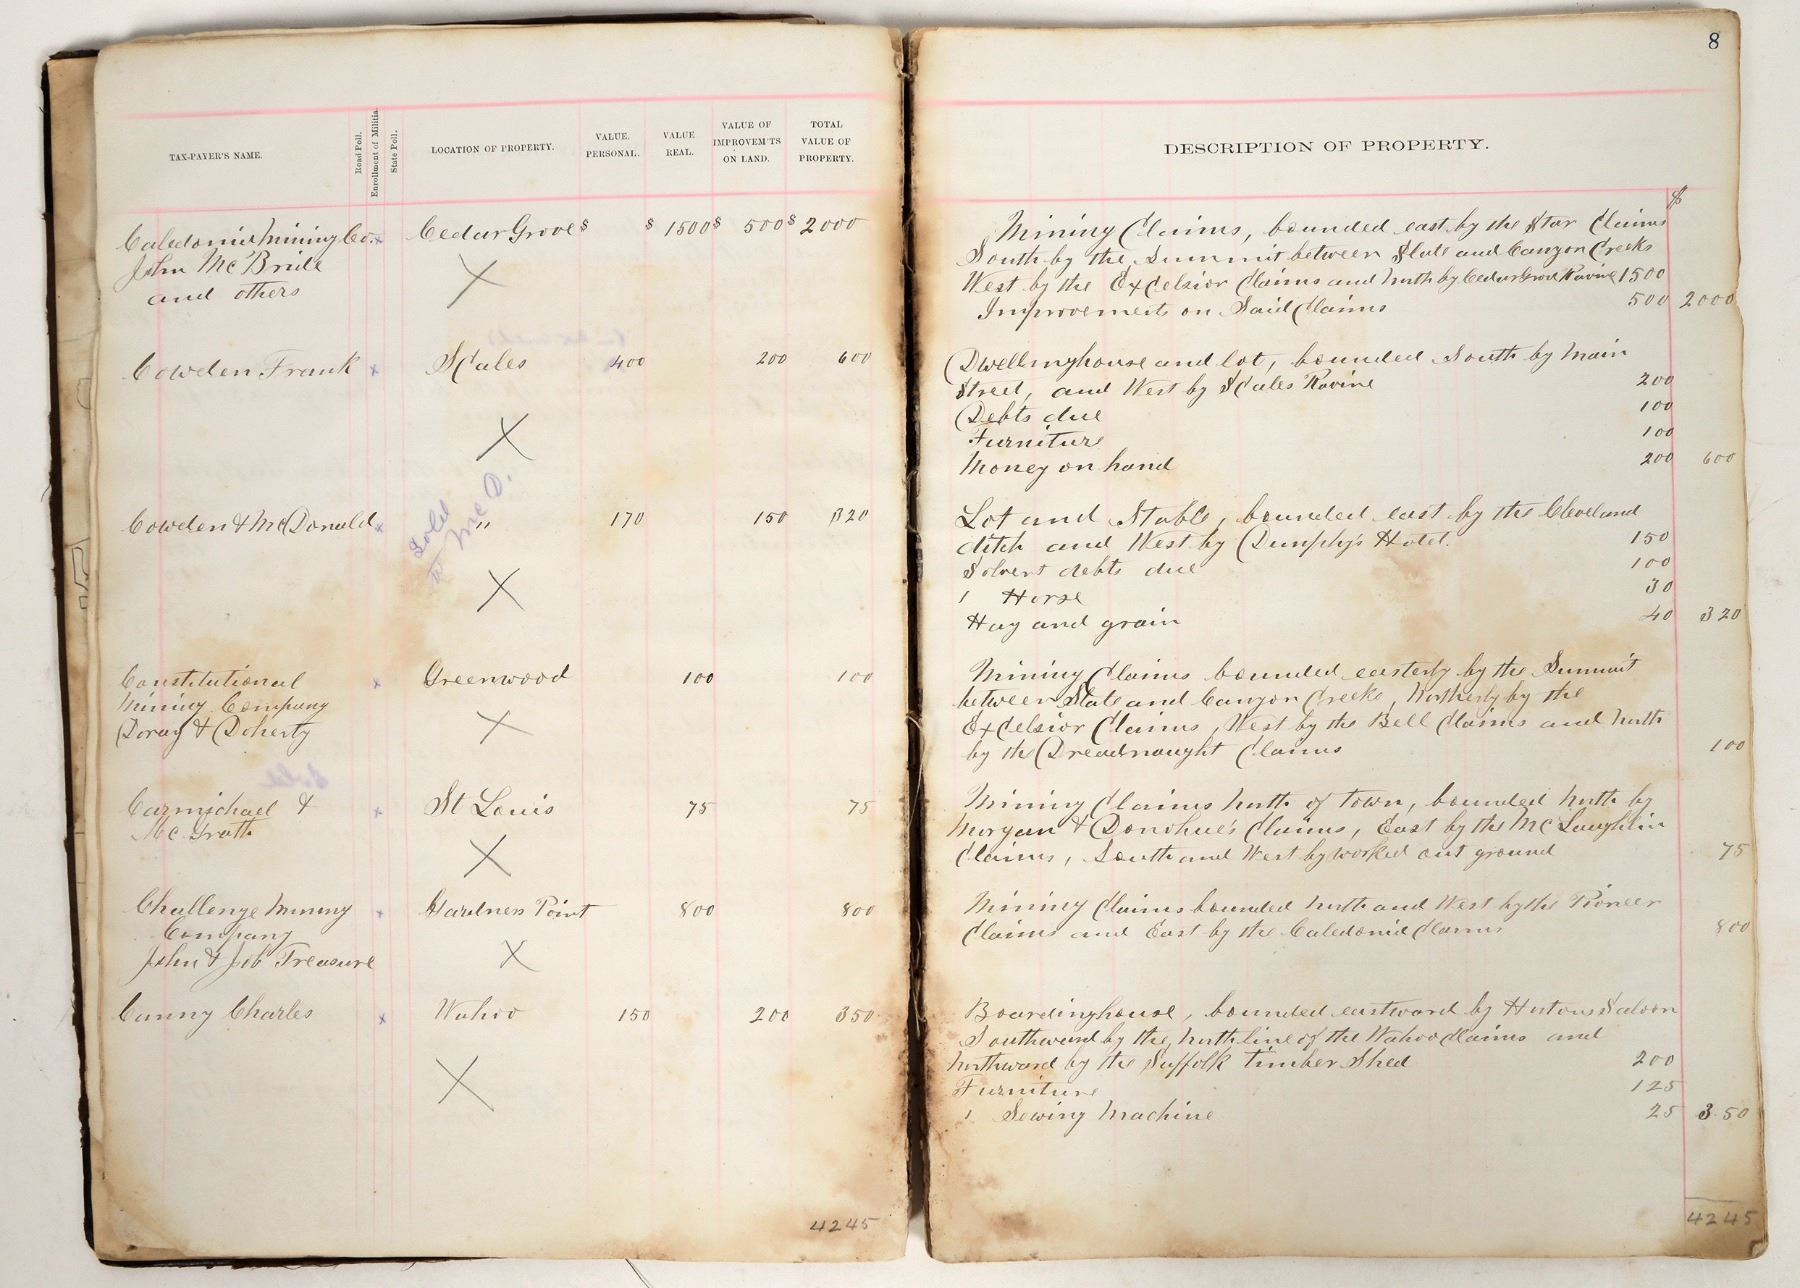 8
TAX-PAYER'S NAME.
Road Poll.
Enrollment of Militia
State Poll.
LOCATION OF PROPERTY.
VALUE. PERSONAL.
VALUE REAL.
VALUE OF IMPROVEM'TS ON LAND.
TOTAL VALUE OF PROPERTY.
DESCRIPTION OF PROPERTY.
$
Caledonia Mining Co. x Cedar Grove $ $ 1500 $ 500 $ 2000
John McBride
and others
X
Mining Claims, bounded east by the Star Claims
South by the Summit between Slate and Canyon Creeks
West by the Excelsior Claims and North by Cedar Grove Ravine 1500
Improvements on Said Claims 500 2000
Cowden Frank x Scales 400 200 600
X
Dwellinghouse and lot, bounded South by Main
Street, and West by Scales Ravine 200
Debts due 100
Furniture 100
Money on hand 200 600
Cowden & McDonald x " 170 150 320
Sold
to McD.
X
Lot and Stable, bounded east by the Cleveland
ditch and West by Dunphy's Hotel. 150
Solvent debts due 100
1 Horse 30
Hay and grain 40 320
Constitutional x Greenwood 100 100
Mining Company
Doray & Doherty
X
Mining Claims bounded easterly by the Summit
between Slate and Canyon Creeks, Northerly by the
Excelsior Claims, West by the Bell Claims and North
by the Dreadnaught Claims 100
Carmichael & x St Louis 75 75
McGrath
X
Mining Claims North of town, bounded North by
Morgan & Donohue's Claims, East by the McLaughlin
Claims, South and West by worked out ground 75
Challenge Mining x Gardners Point 800 800
Company
John & Job Treasure
X
Mining Claims bounded North and West by the Pioneer
Claims and East by the Caledonia Claims 800
Canny Charles x Wahoo 150 200 350
X
Boardinghouse, bounded eastward by Hustons Saloon
Southward by the North line of the Wahoo Claims and
Northward by the Suffolk timber Shed 200
Furniture 125
1 Sewing Machine 25 3.50
4245
4245